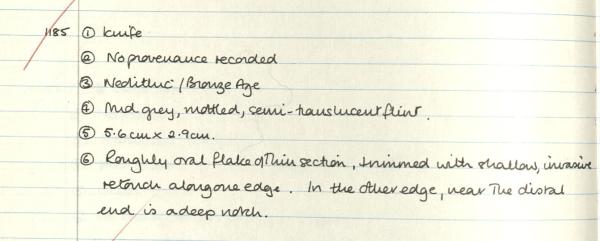 1185 ① Knife
② No provenance recorded
③ Neolithic / Bronze Age
④ Mid grey, mottled, semi-translucent flint.
⑤ 5.6cm x 2.9cm.
⑥ Roughly oval flake of thin section, trimmed with shallow, invasive
retouch along one edge. In the other edge, near the distal
end is a deep notch.